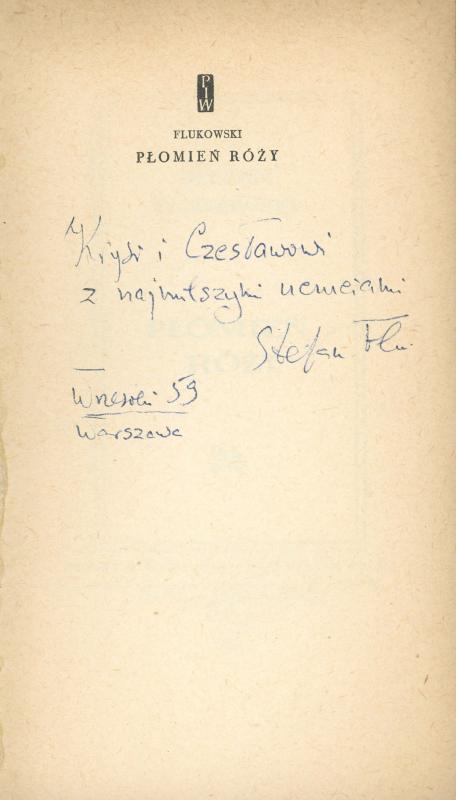 PIW
FLUKOWSKI
PŁOMIEŃ RÓŻY
Krysi i Czesławowi
z najmilszymi uczuciami
Stefan Flu.
Wrzesień 59
Warszawa